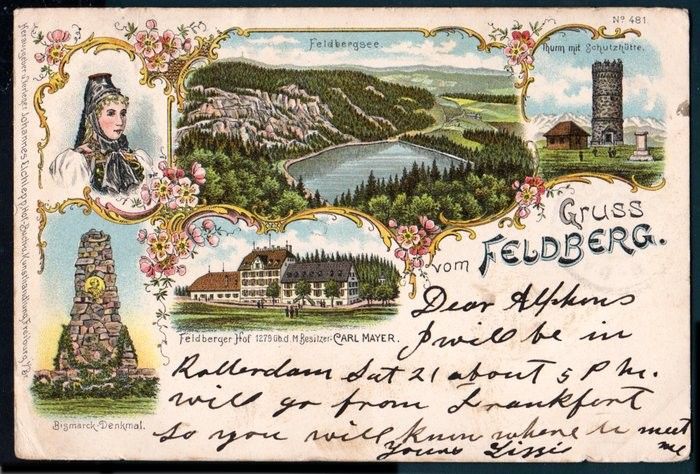 Nº 481.
Feldbergsee.
Thurm mit Schutzhütte.
Gruss
vom FELDBERG.
Feldberger Hof 1279 üb.d. M. Besitzer: CARL MAYER.
Bismarck-Denkmal.
Dear Alphons
I will be in
Rotterdam Sat 21 about 5 P.M.
will go from Frankfort
so you will know where to meet
me
Yours Lissie